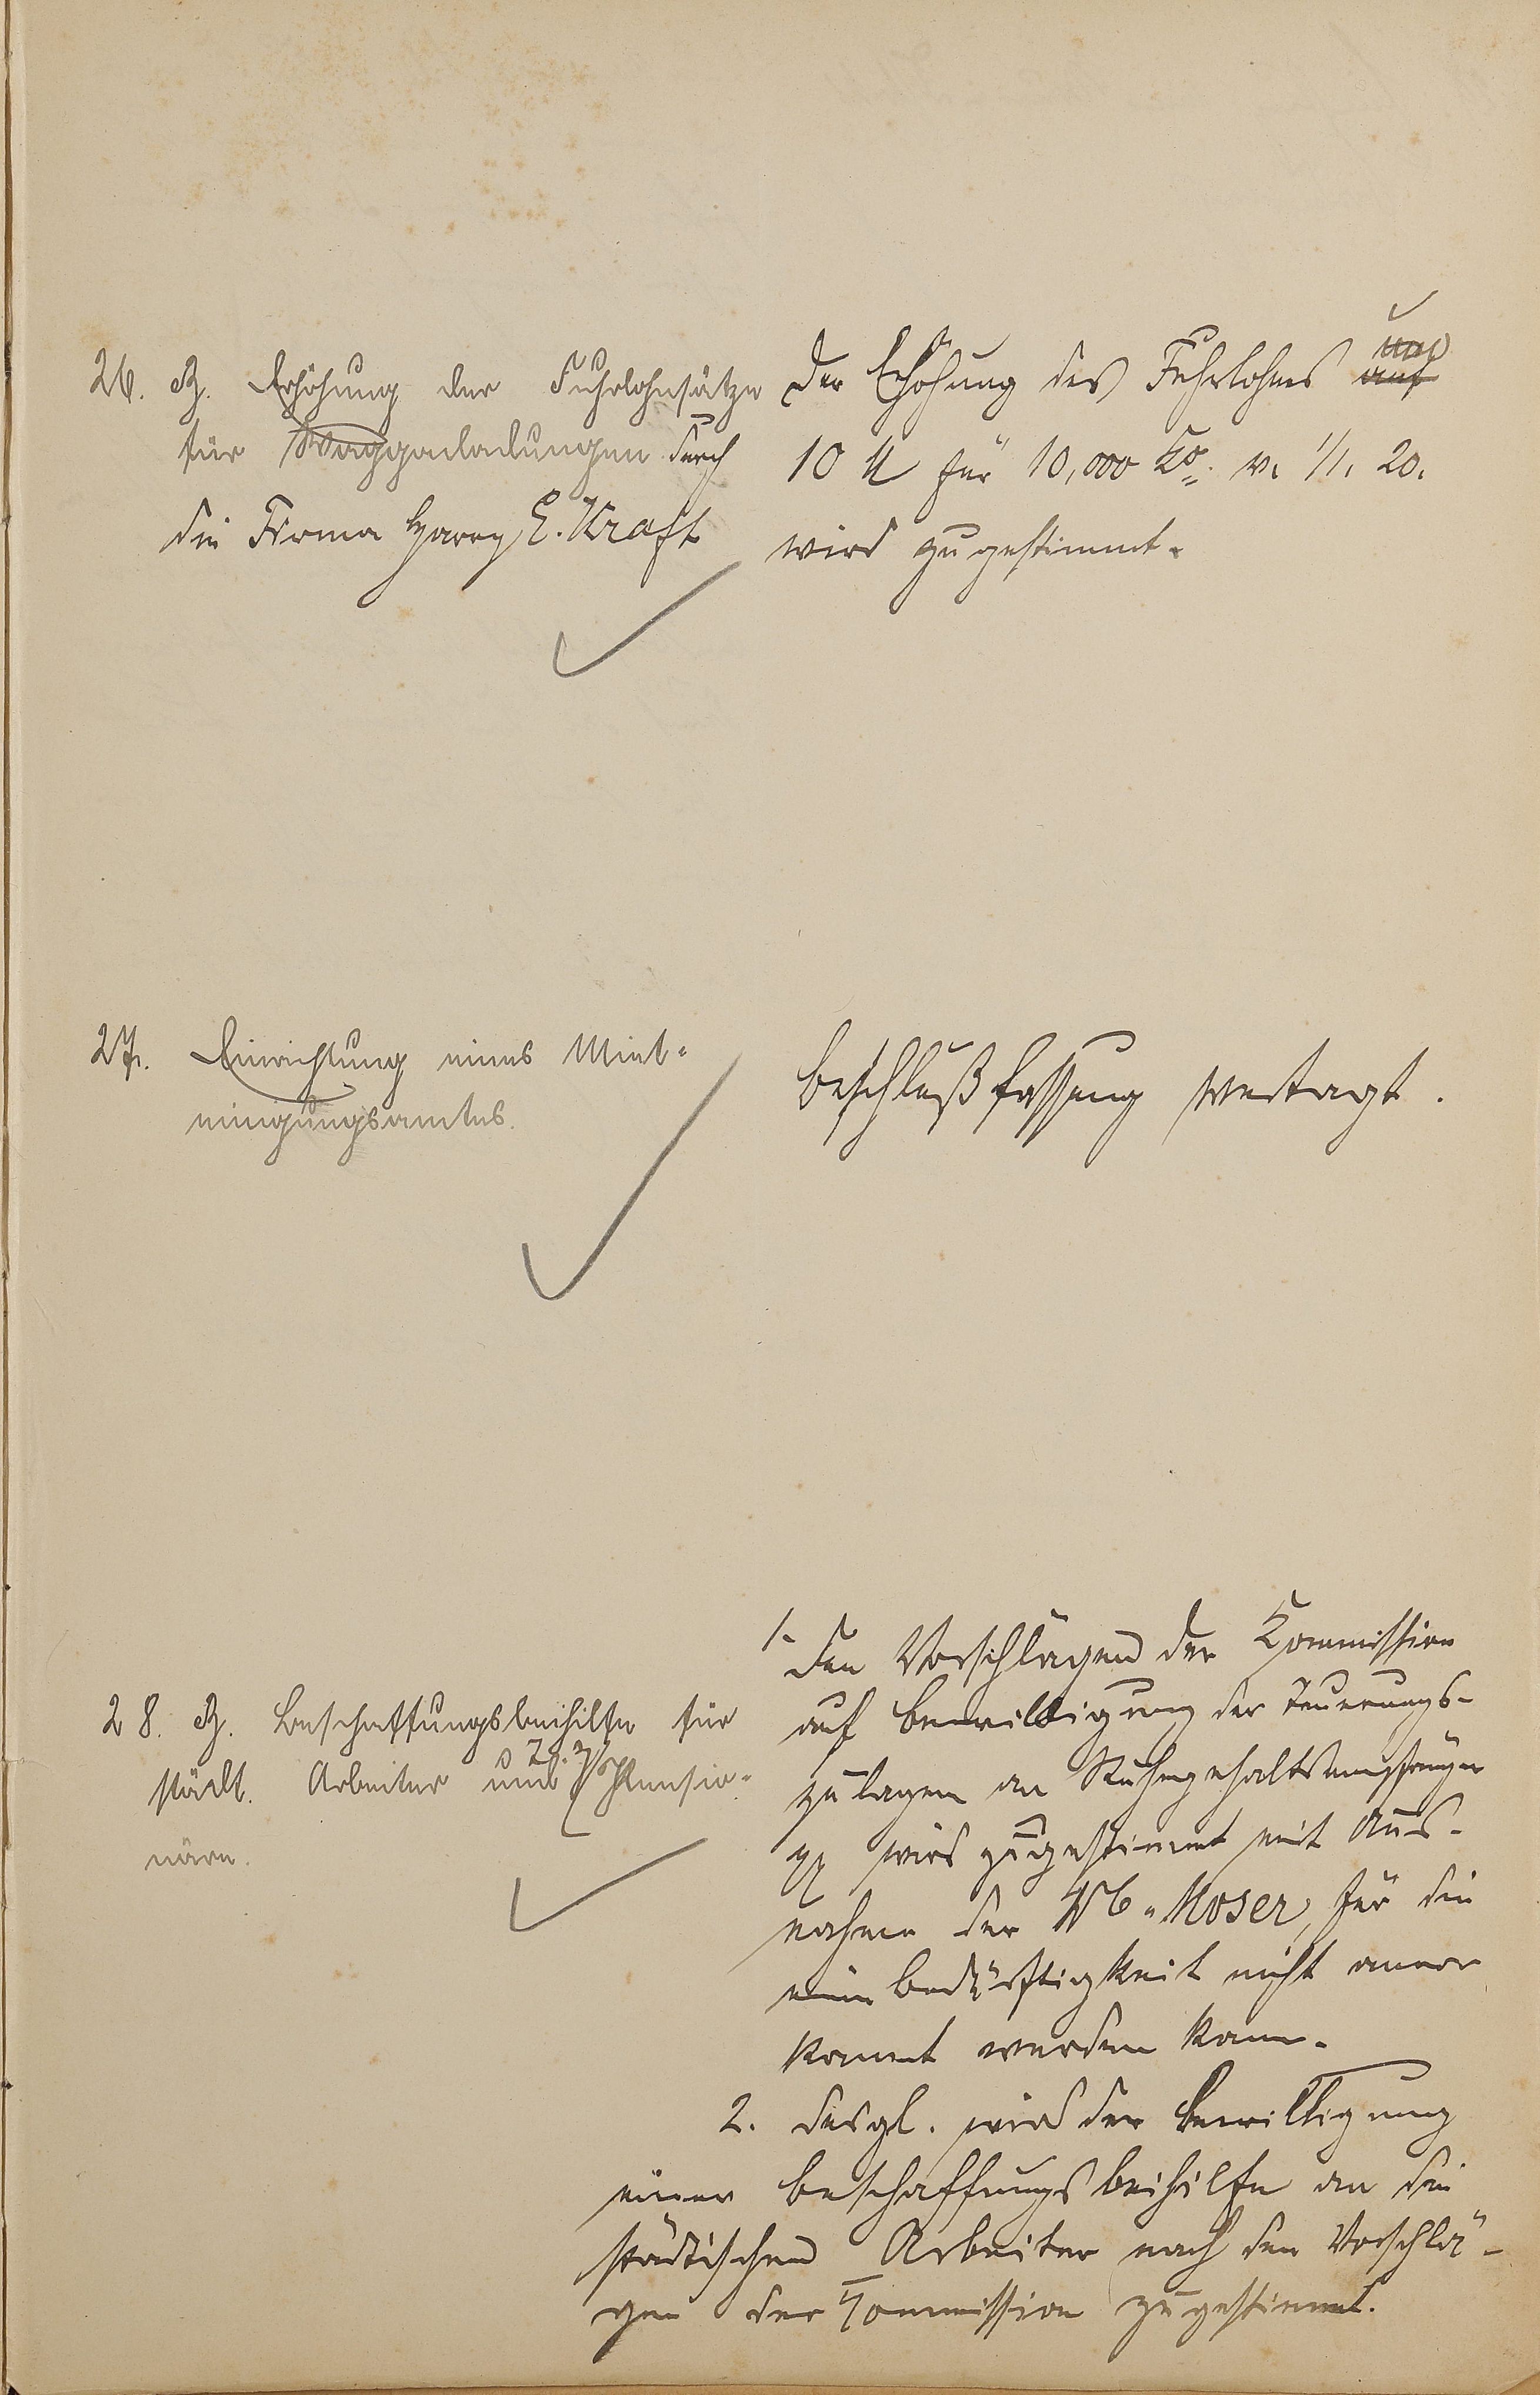 26. B. Erhöhung der Fuhrlohnsätze
für Waggonladungen durch
die Firma Harry E. Kraft
Der Erhöhung des Fuhrlohnes um
auf
10 M für 10,000 Ko. v. 1/1. 20.
wird zugestimmt.
27. Einrichtung eines Miet-
einigungsamtes.
Beschlußfassung vertagt.
28. B. Beschaffungsbeihilfe für
städt. Arbeiter und Pensio-
näre.
1. Den Vorschlägen der Kommission
auf Bewilligung der Teuerungs-
zulagen an Ruhegehaltsempfänger
pp wird zugestimmt mit Aus-
nahme der Wb. Moser, für die
eine Bedürftigkeit nicht aner
kannt werden kann.
2. Desgl. wird der Bewilligung
einer Beschaffungsbeihilfe an die
städtischen Arbeiter nach den Vorschlä-
gen der Kommission zugestimmt.